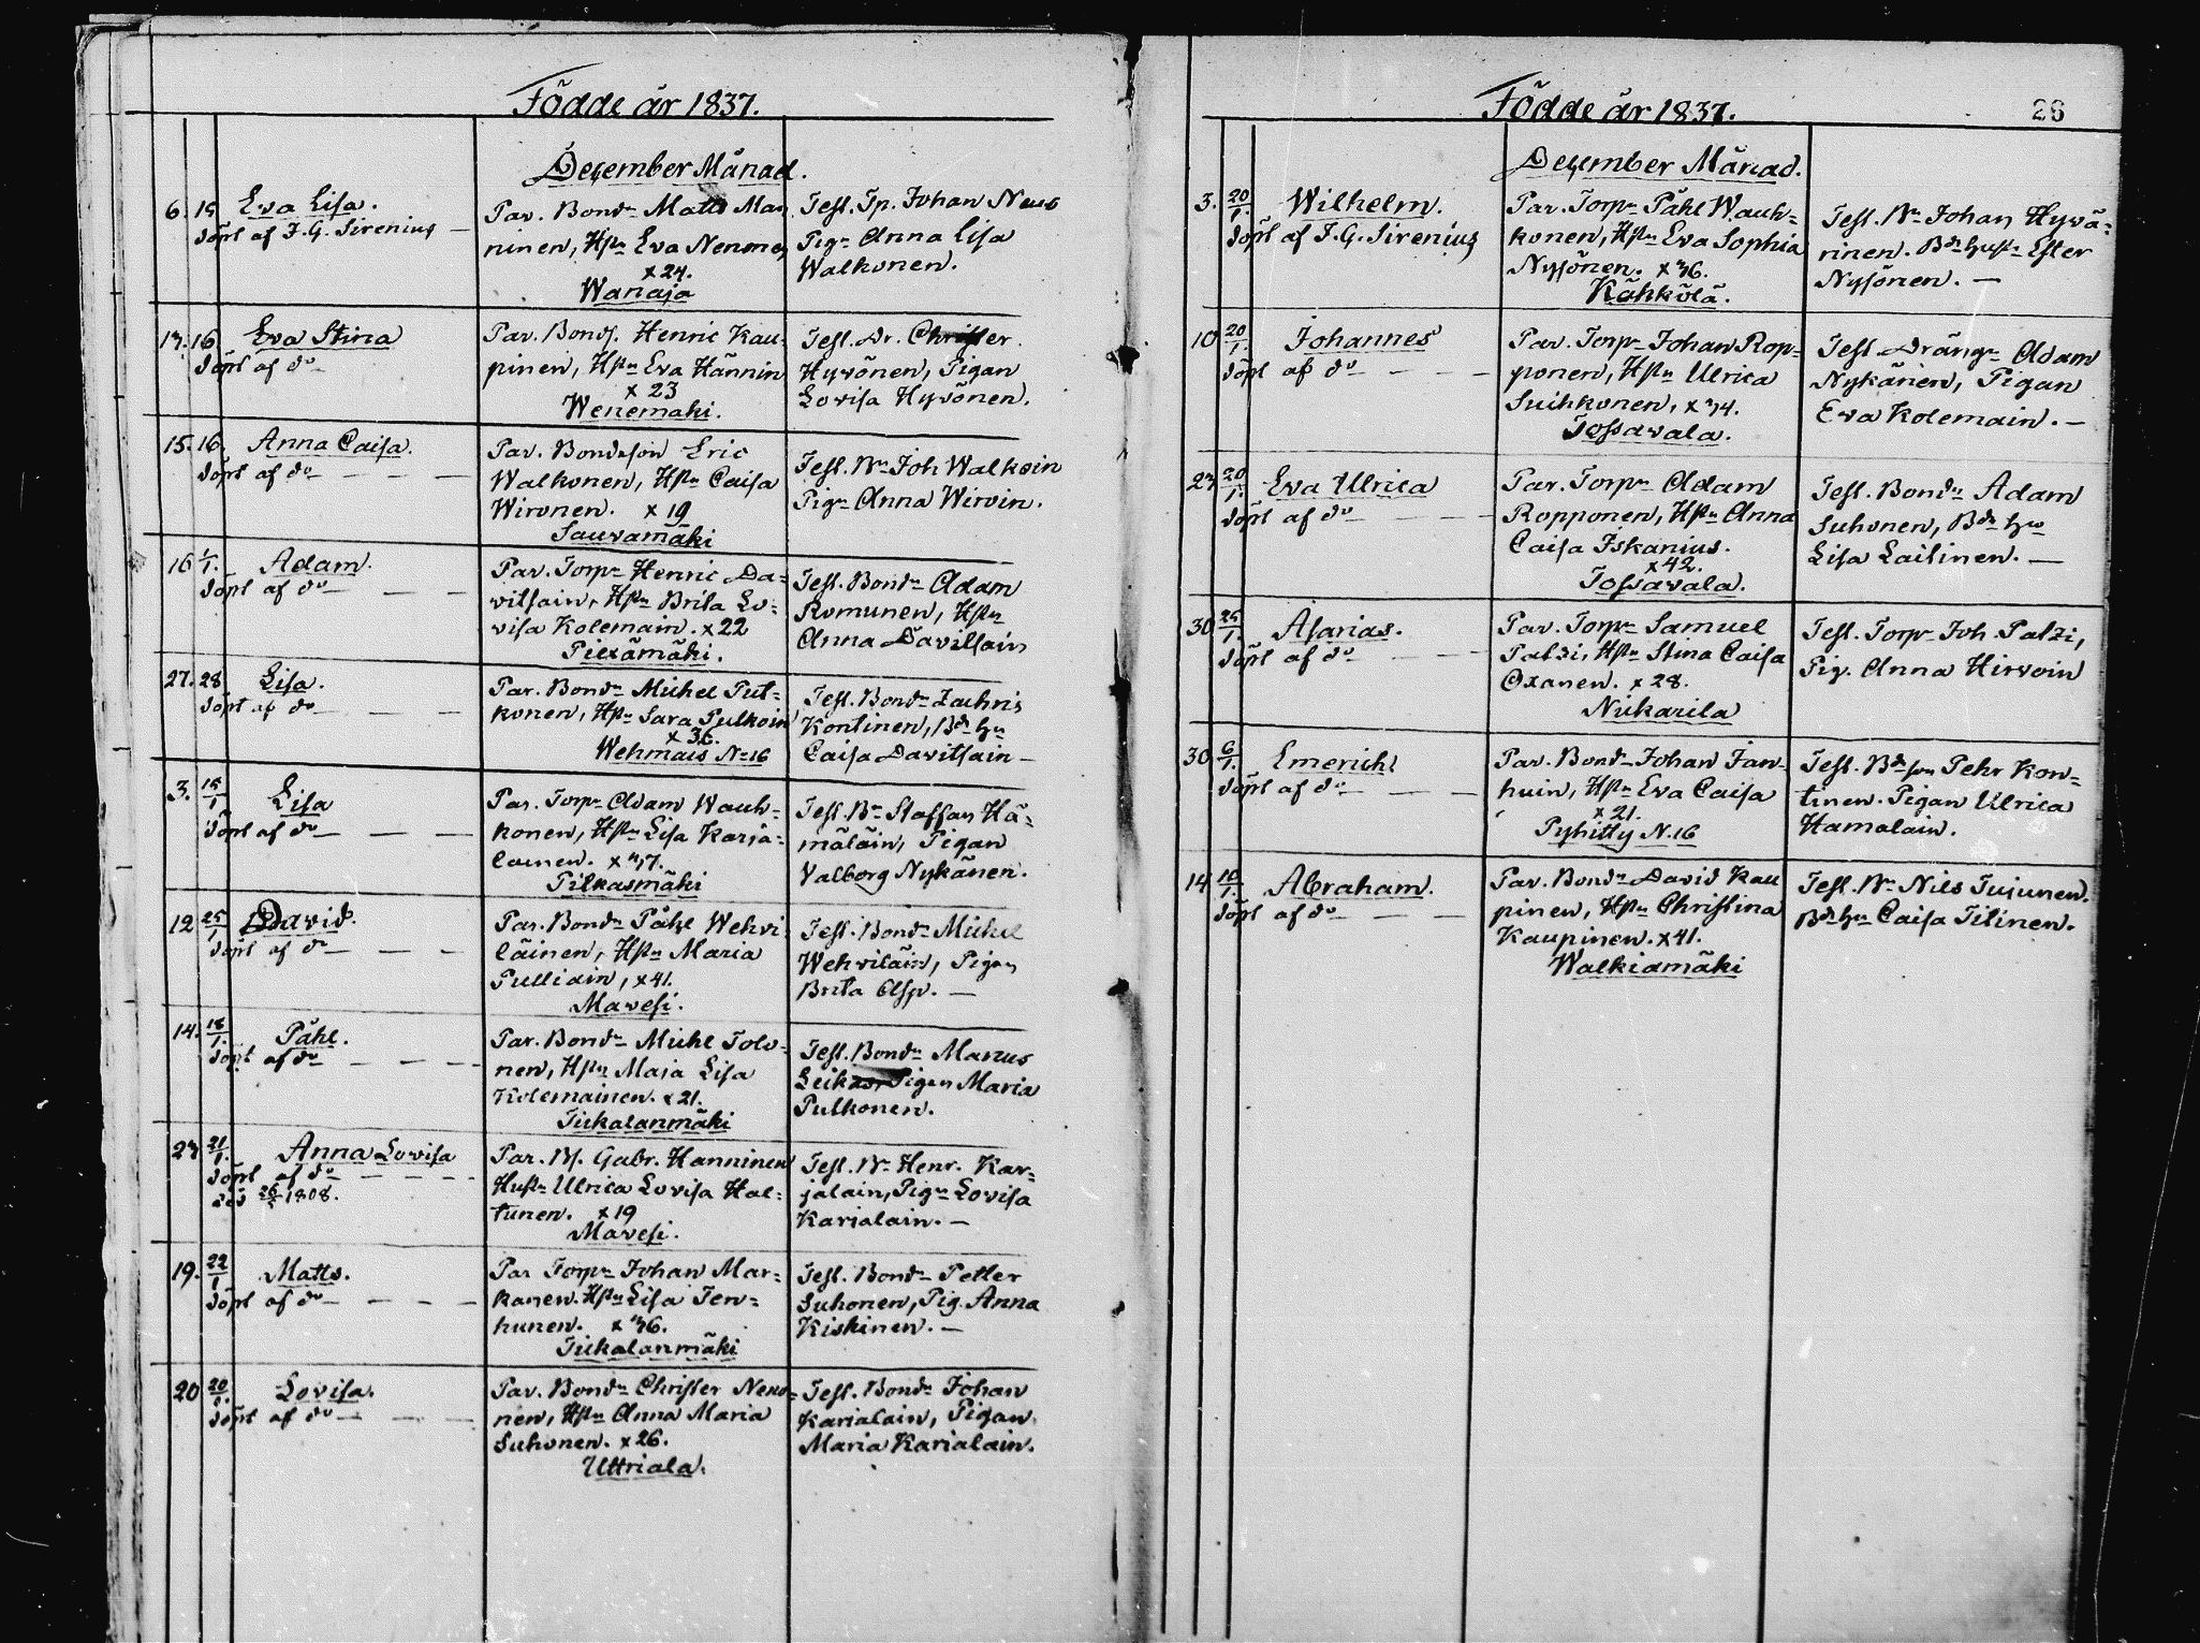 Födde år 1837.
December Månad.
6. 15 Eva Lisa.
döpt af J. G. Sirenius —
Par. Bondn Matts Man
ninen, Hstn Eva Nenonen
x 24.
Wanaja
Test. Tp. Johan Neno
Pign Anna Lisa
Walkonen.
13. 16 Eva Stina
döpt af do
Par. Bonds. Henric Kau
pinen, Hstn Eva Hännin
x 23
Wenemäki.
Test. Dr. Christer
Hyvönen, Pigan
Lovisa Hyvönen.
15. 16. Anna Caisa.
döpt af do — — —
Par. Bondeson Eric
Walkonen, Hstn Caisa
Wironen. x 19
Sauvamäki
Test. Bn Joh Walkoin
Pign Anna Wirvin.
16 1/1. Adam.
döpt af do — — —
Par. Torpn Henric Da-
vitsain, Hstn Brita Lo-
visa Kolemain. x 22
Piexämäki.
Test. Bondn Adam
Romunen, Hstn
Anna Davitsain
27. 28 Lisa.
döpt af do — — —
Par. Bondn Michel Put-
konen, Hstn Sara Pulkoin
x 36.
Wehmais No 16
Test. Bondn Zachris
Kontinen, Bdn hu
Caisa Davitsain —
3. 15/1 Lisa
döpt af do — — —
Par. Torpn Adam Wauh-
konen, Hstn Lisa Karja-
lainen. x 37.
Pilkasmäki
Test. Bn Staffan Hä-
mäläin, Pigan
Valborg Nykänen.
12 25/1 David.
döpt af do — — —
Par. Bondn Påhl Wehvi
läinen, Hstn Maria
Pulliain, x 41.
Mavesi.
Test. Bondn Michel
Wehviläin, Pigan
Brita Asp. —
14. 18/1. Påhl.
döpt af do — — —
Par. Bondn Michl Tolo-
nen, Hstn Maja Lisa
Kolemainen. x 21.
Tiikalanmäki
Test. Bondn Manus
Pigan Maria
Pulkonen.
23 21/1. Anna Lovisa
döpt af do — — — —
1808.
Par. Bs. Gabr. Hanninen
Hustn Ulrica Lovisa Hal-
tunen. x 19
Mavesi.
Test. Bn Henr. Kar-
jalain, Pign Lovisa
Karialain. —
19. 22/1 Matts.
döpt af do — — — —
Par Torpn Johan Mar-
kanen. Hstn Lisa Ten-
hunen. x 36.
Tiikalanmäki
Test. Bondn Petter
Suhonen, Pig. Anna
Kiskinen. —
20 20/1 Lovisa.
döpt af do — — —
Par. Bondn Christer Neno-
nen, Hstn Anna Maria
Suhonen. x 26.
Uttriala.
Test. Bondn Johan
Karialain, Pigan
Maria Karialain.
Födde år 1837.
26
December Månad.
3. 20/1. Wilhelm.
döpt af J. G. Sirenius
Par. Torpn Påhl Wauh-
konen, Hstn Eva Sophia
Nyssönen. x 36.
Kähkölä.
Test. Bn Johan Hyvä-
rinen. Bdn hustn Ester
Nyssönen. —
10 20/1. Johannes
döpt af do — — —
Par. Torpn Johan Rop-
ponen, Hstn Ulrica
Suihkonen, x 34.
Tossavala.
Test Drängn Adam
Nykänen, Pigan
Eva Kolemain. —
23 20/1. Eva Ulrica
döpt af do — — —
Par. Torpn Adam
Ropponen, Hstn Anna
Caisa Iskanius.
x 42.
Tossavala.
Test. Bondn Adam
Suhonen, Bdn hu
Lisa Laitinen. —
30 25/1. Asarias.
döpt af do — — —
Par. Torpn Samuel
Patzi, Hstn Stina Caisa
Oxanen. x 28.
Nikarila
Test. Torpn Joh. Patzi,
Pig. Anna Hirvoin
30 6/1. Emerich
döpt af do — — —
Par. Bondn Johan Jan-
huin, Hstn Eva Caisa
x 21.
Pyhitty N. 16
Test. Bdeson Pehr Kon-
tinen. Pigan Ulrica
Hamalain.
14 10/1. Abraham.
döpt af do — — —
Par. Bondn David Kau
pinen, Hstn Christina
Kaupinen. x 41.
Walkiamäki
Test. Bn Nils Tujunen.
Bdn hu Caisa Titinen.